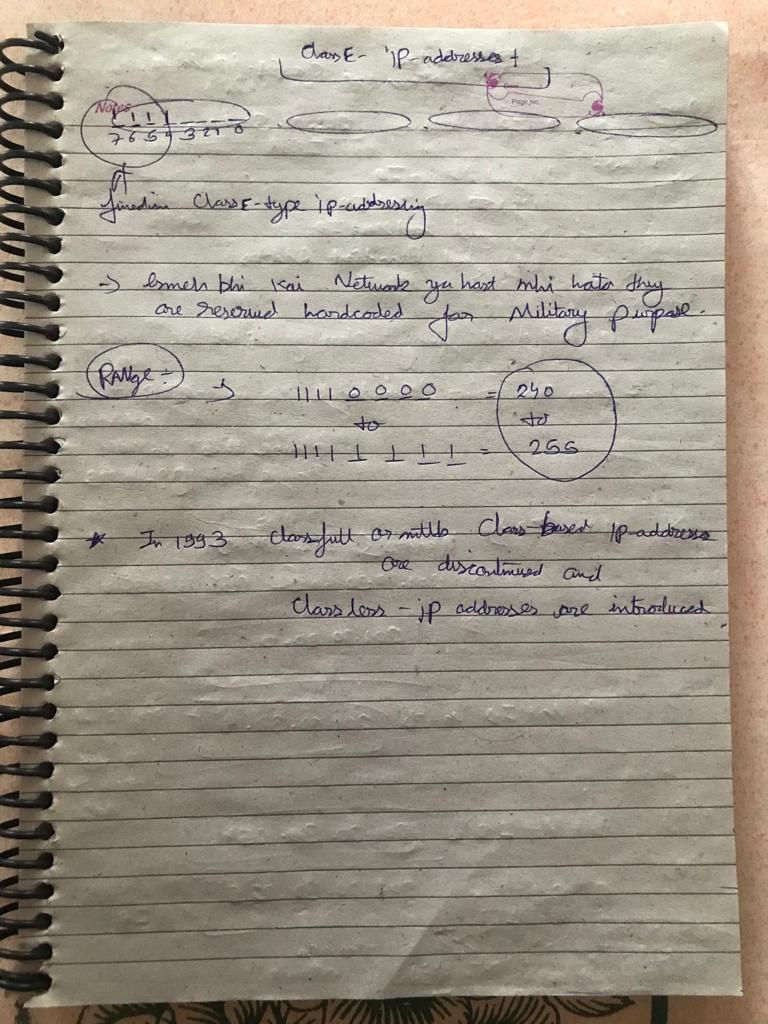 Class E- ip-addresses
Date:
Page No.
Notes
1 1 1 1
7 6 5 4 3 2 1 0
Class E-type ip-addressing
→ Esmeh bhi koi Network ya host nhi hota they
are reserved hardcoded for Military purpose.
RANge :- → 1111 0 0 0 0 = 240
to to
1111 1 1 1 1 = 255
* In 1993 classfull or mtlb Class-based IP-addresses
are discontinued and
Class less - ip addresses are introduced